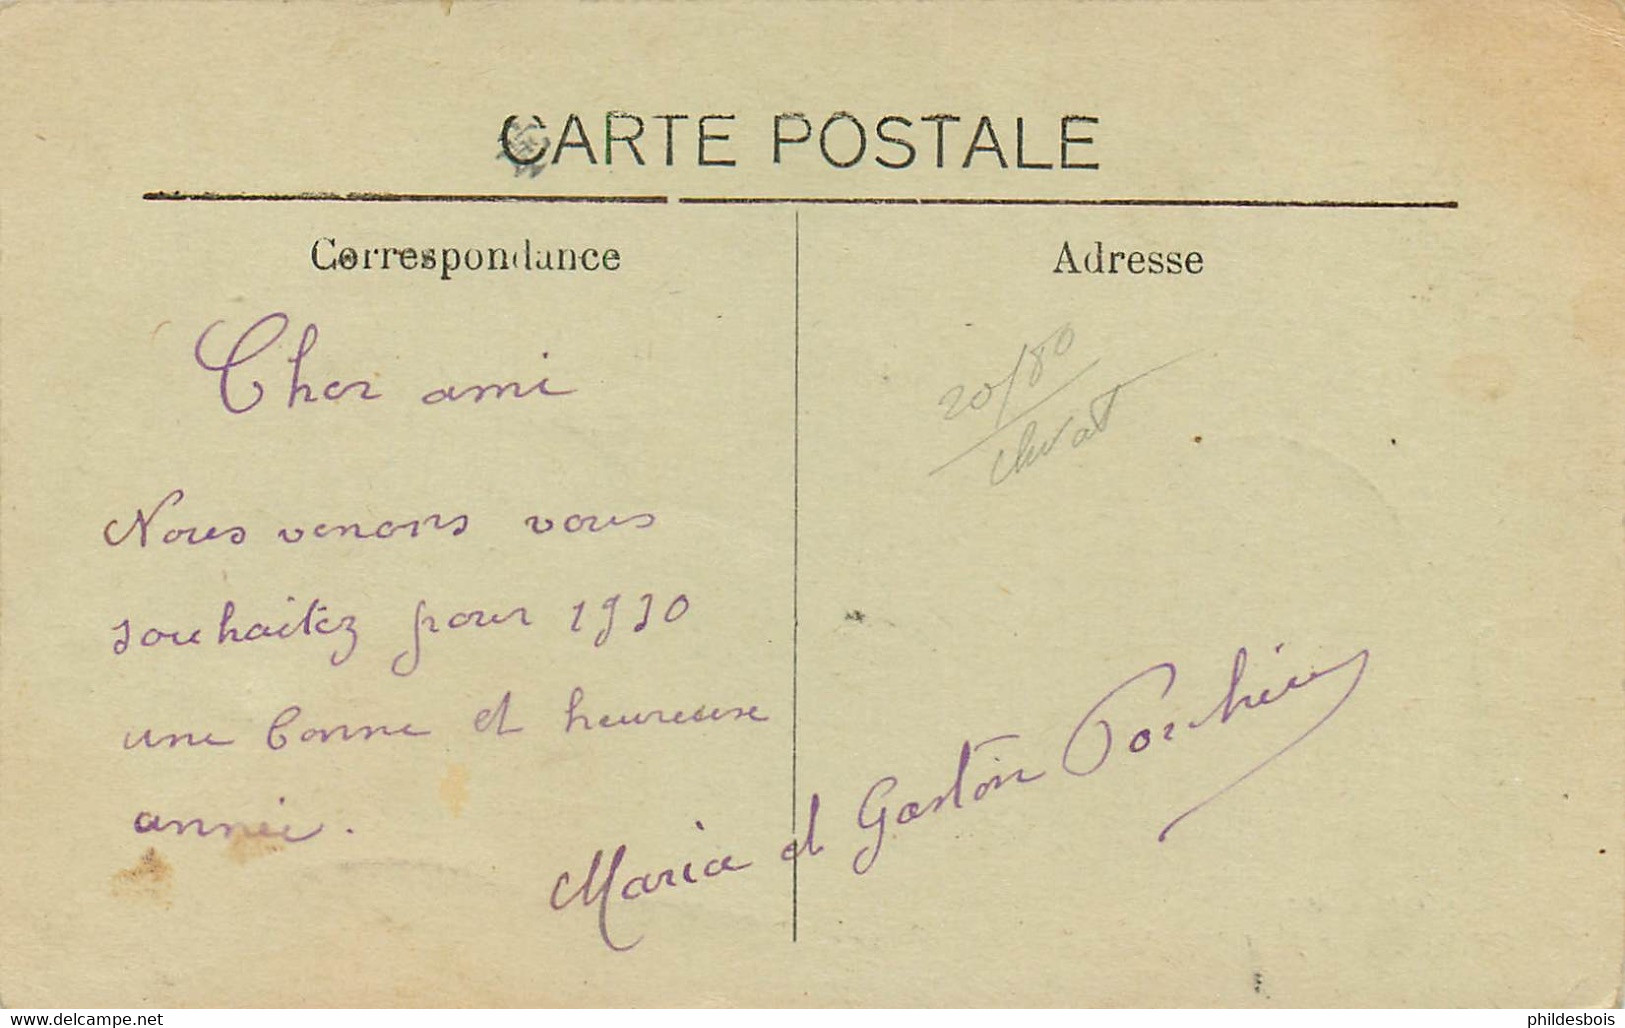 CARTE POSTALE
Correspondance
Adresse
Cher ami
20/80
Nous venons vous
souhaitez pour 1930
une bonne et heureuse
année.
Maria et Gaston
www.delcampe.net
phildesbois